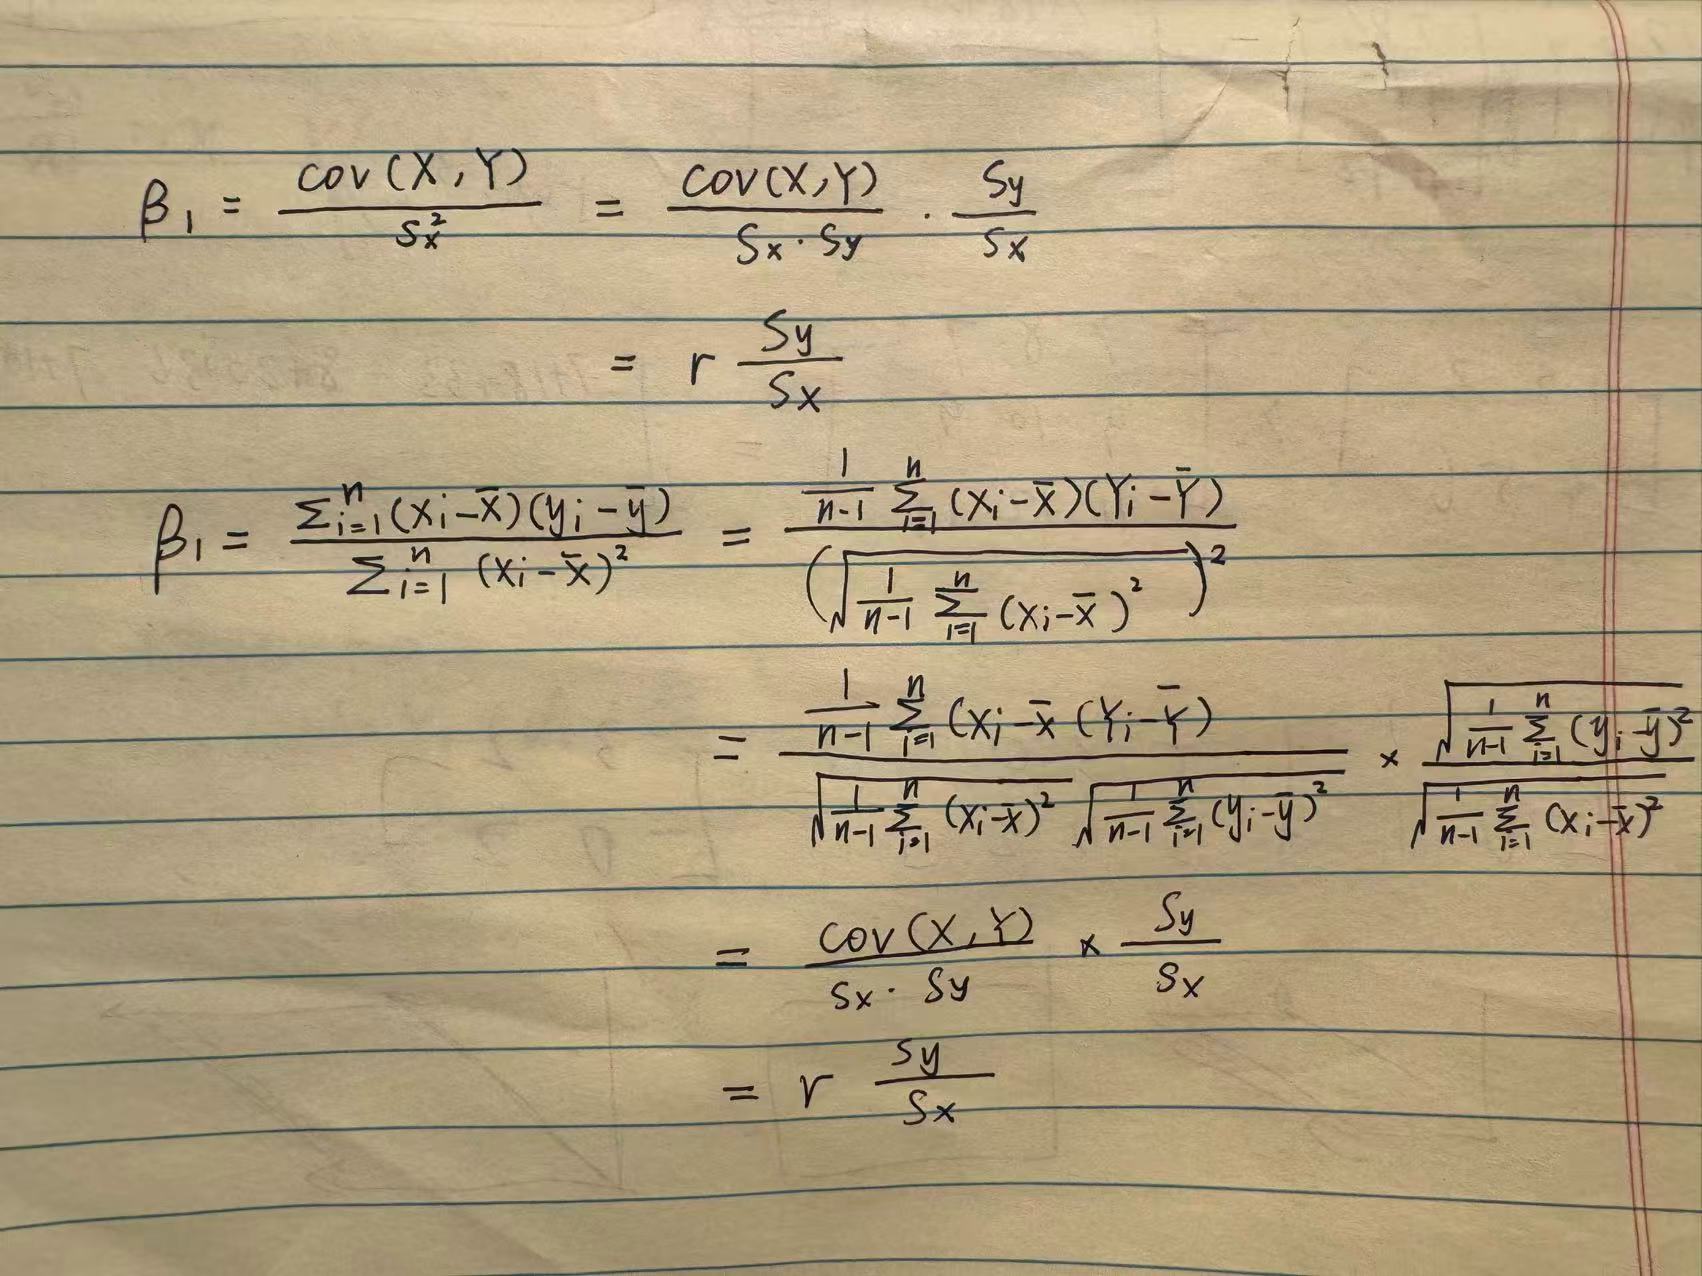 β₁ = cov(X, Y) / Sx² = cov(X, Y) / (Sx · Sy) · Sy / Sx
= r Sy / Sx
β₁ = Σᵢ₌₁ⁿ (xᵢ - x̄)(yᵢ - ȳ) / Σᵢ₌₁ⁿ (xᵢ - x̄)² = 1/(n-1) Σᵢ₌₁ⁿ (xᵢ - x̄)(Yᵢ - Ȳ) / (√(1/(n-1) Σᵢ₌₁ⁿ (xᵢ - x̄)²))²
= 1/(n-1) Σᵢ₌₁ⁿ (xᵢ - x̄ (Yᵢ - Ȳ) / (√(1/(n-1) Σᵢ₌₁ⁿ (xᵢ - x̄)²) √(1/(n-1) Σᵢ₌₁ⁿ (yᵢ - ȳ)²)) × √(1/(n-1) Σᵢ₌₁ⁿ (yᵢ - ȳ)²) / √(1/(n-1) Σᵢ₌₁ⁿ (xᵢ - x̄)²)
= cov(X, Y) / (Sx · Sy) × Sy / Sx
= r Sy / Sx